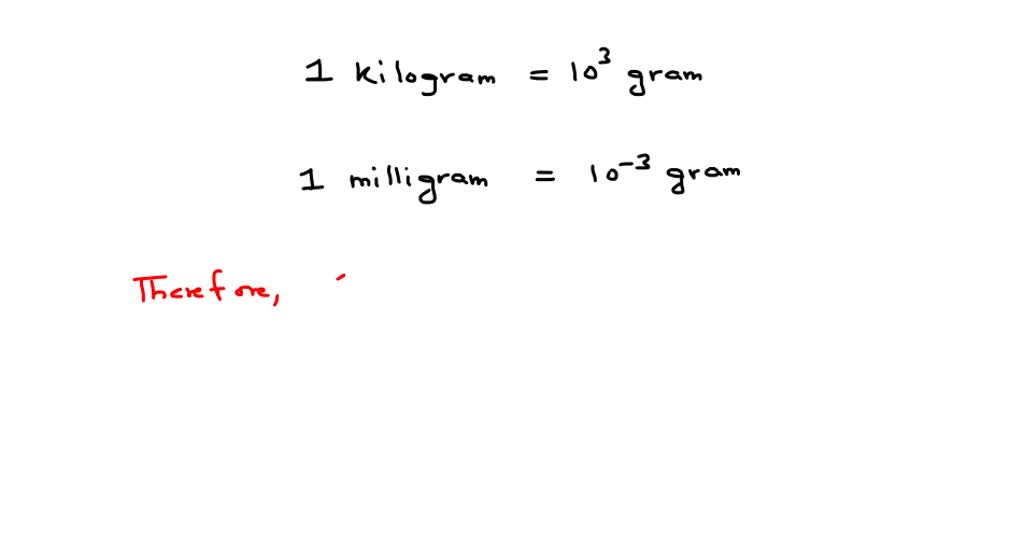 1 kilogram = 10³ gram
1 milligram = 10⁻³ gram
Therefore,